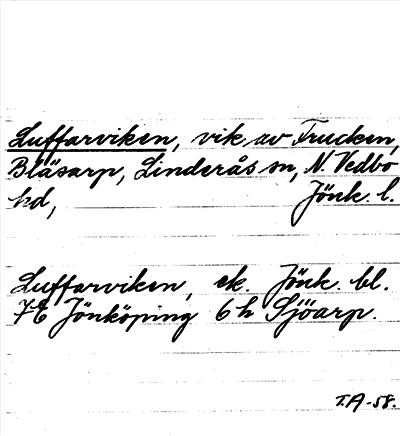 Luffarviken, vik av Trucken,
Bläsarp, Linderås sn, N. Vedbo
hd, Jönk. l.
Luffarviken, ek. Jönk. bl.
7E Jönköping 6h Sjöarp.
T.A-58.